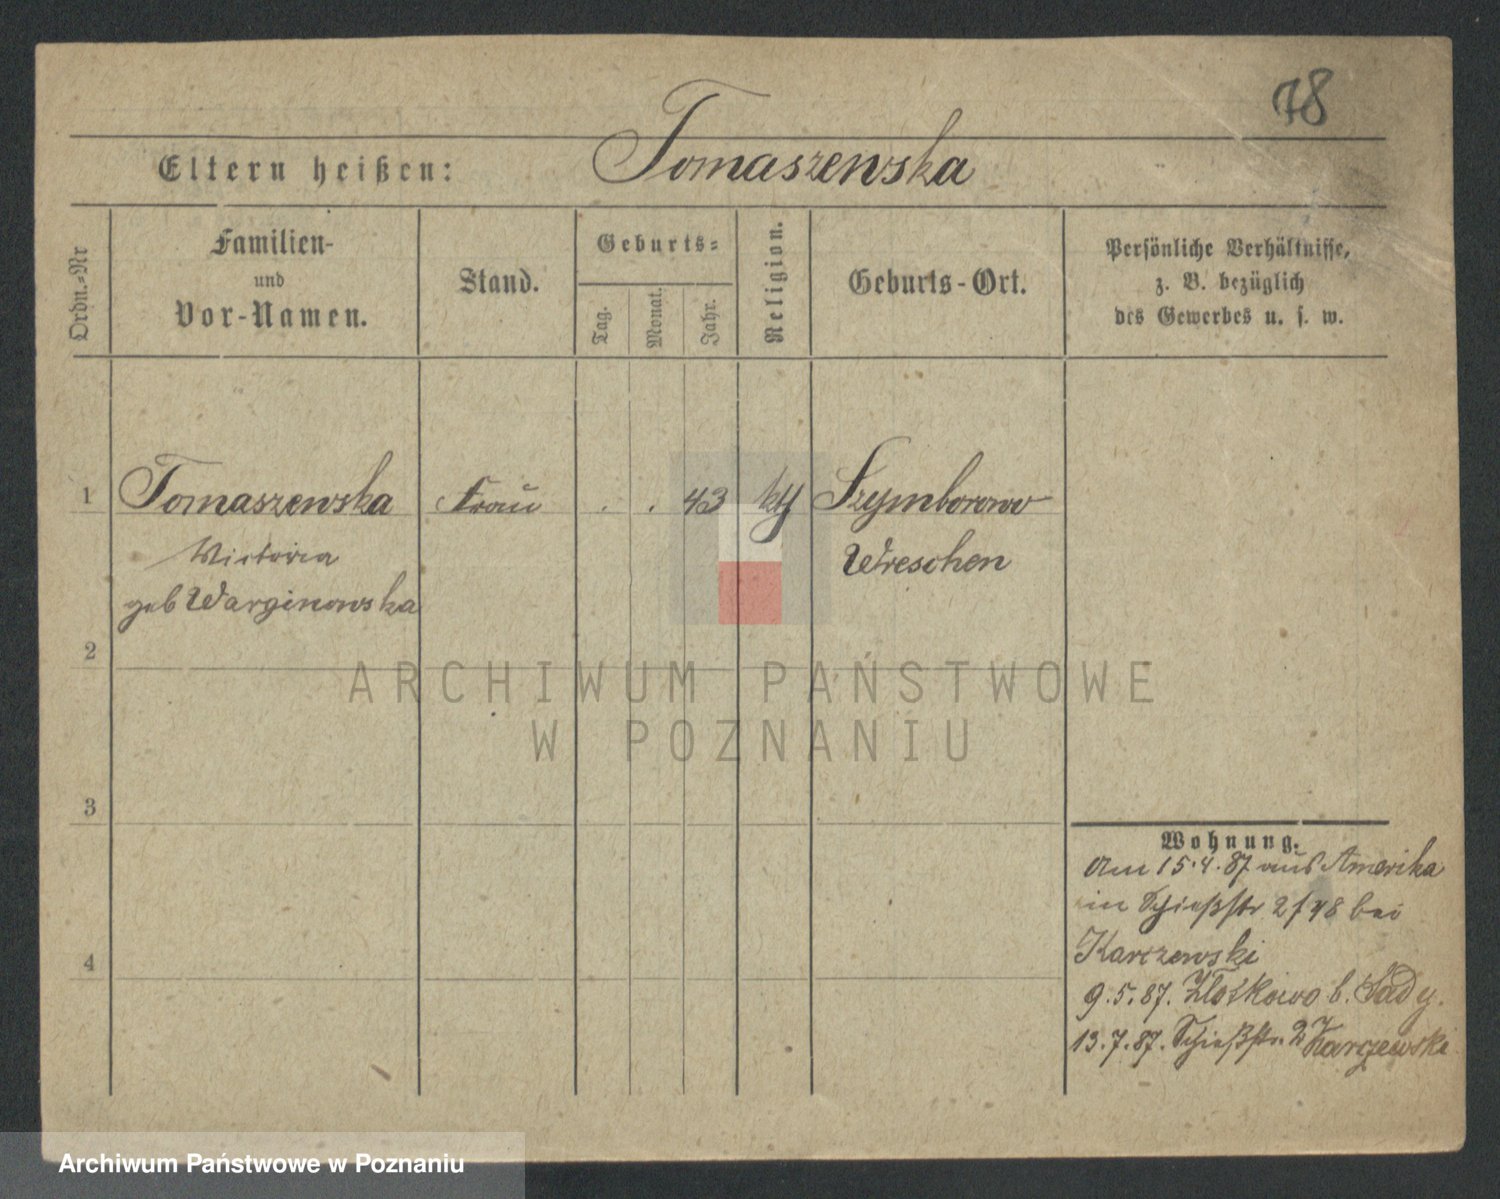 78
Eltern heißen: Tomaszewska
Ordn.-Nr
Familien-
und
Vor-Namen.
Stand.
Geburts-
Tag.
Monat.
Jahr.
Religion.
Geburts-Ort.
Persönliche Verhältnisse,
z. B. bezüglich
des Gewerbes u. s. w.
1 Tomaszewska Frau . . 43 kth Szymborowo
Victoria Wreschen
geb Warginowska
2
3
4
Wohnung.
Am 15.4.87 aus Amerika
in Schießstr 2 / 48 bei
Karczewski
9.5.87. Zlotkowo b. Sady.
13.7.87. Schießstr. 2 Karczewski
ARCHIWUM PAŃSTWOWE
W POZNANIU
Archiwum Państwowe w Poznaniu